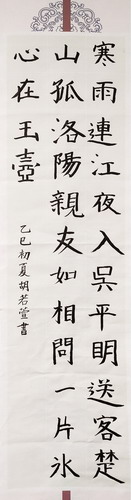 寒雨連江夜入吳平明送客楚
山孤洛陽親友如相問一片冰
心在玉壺
乙巳初夏胡若萱書